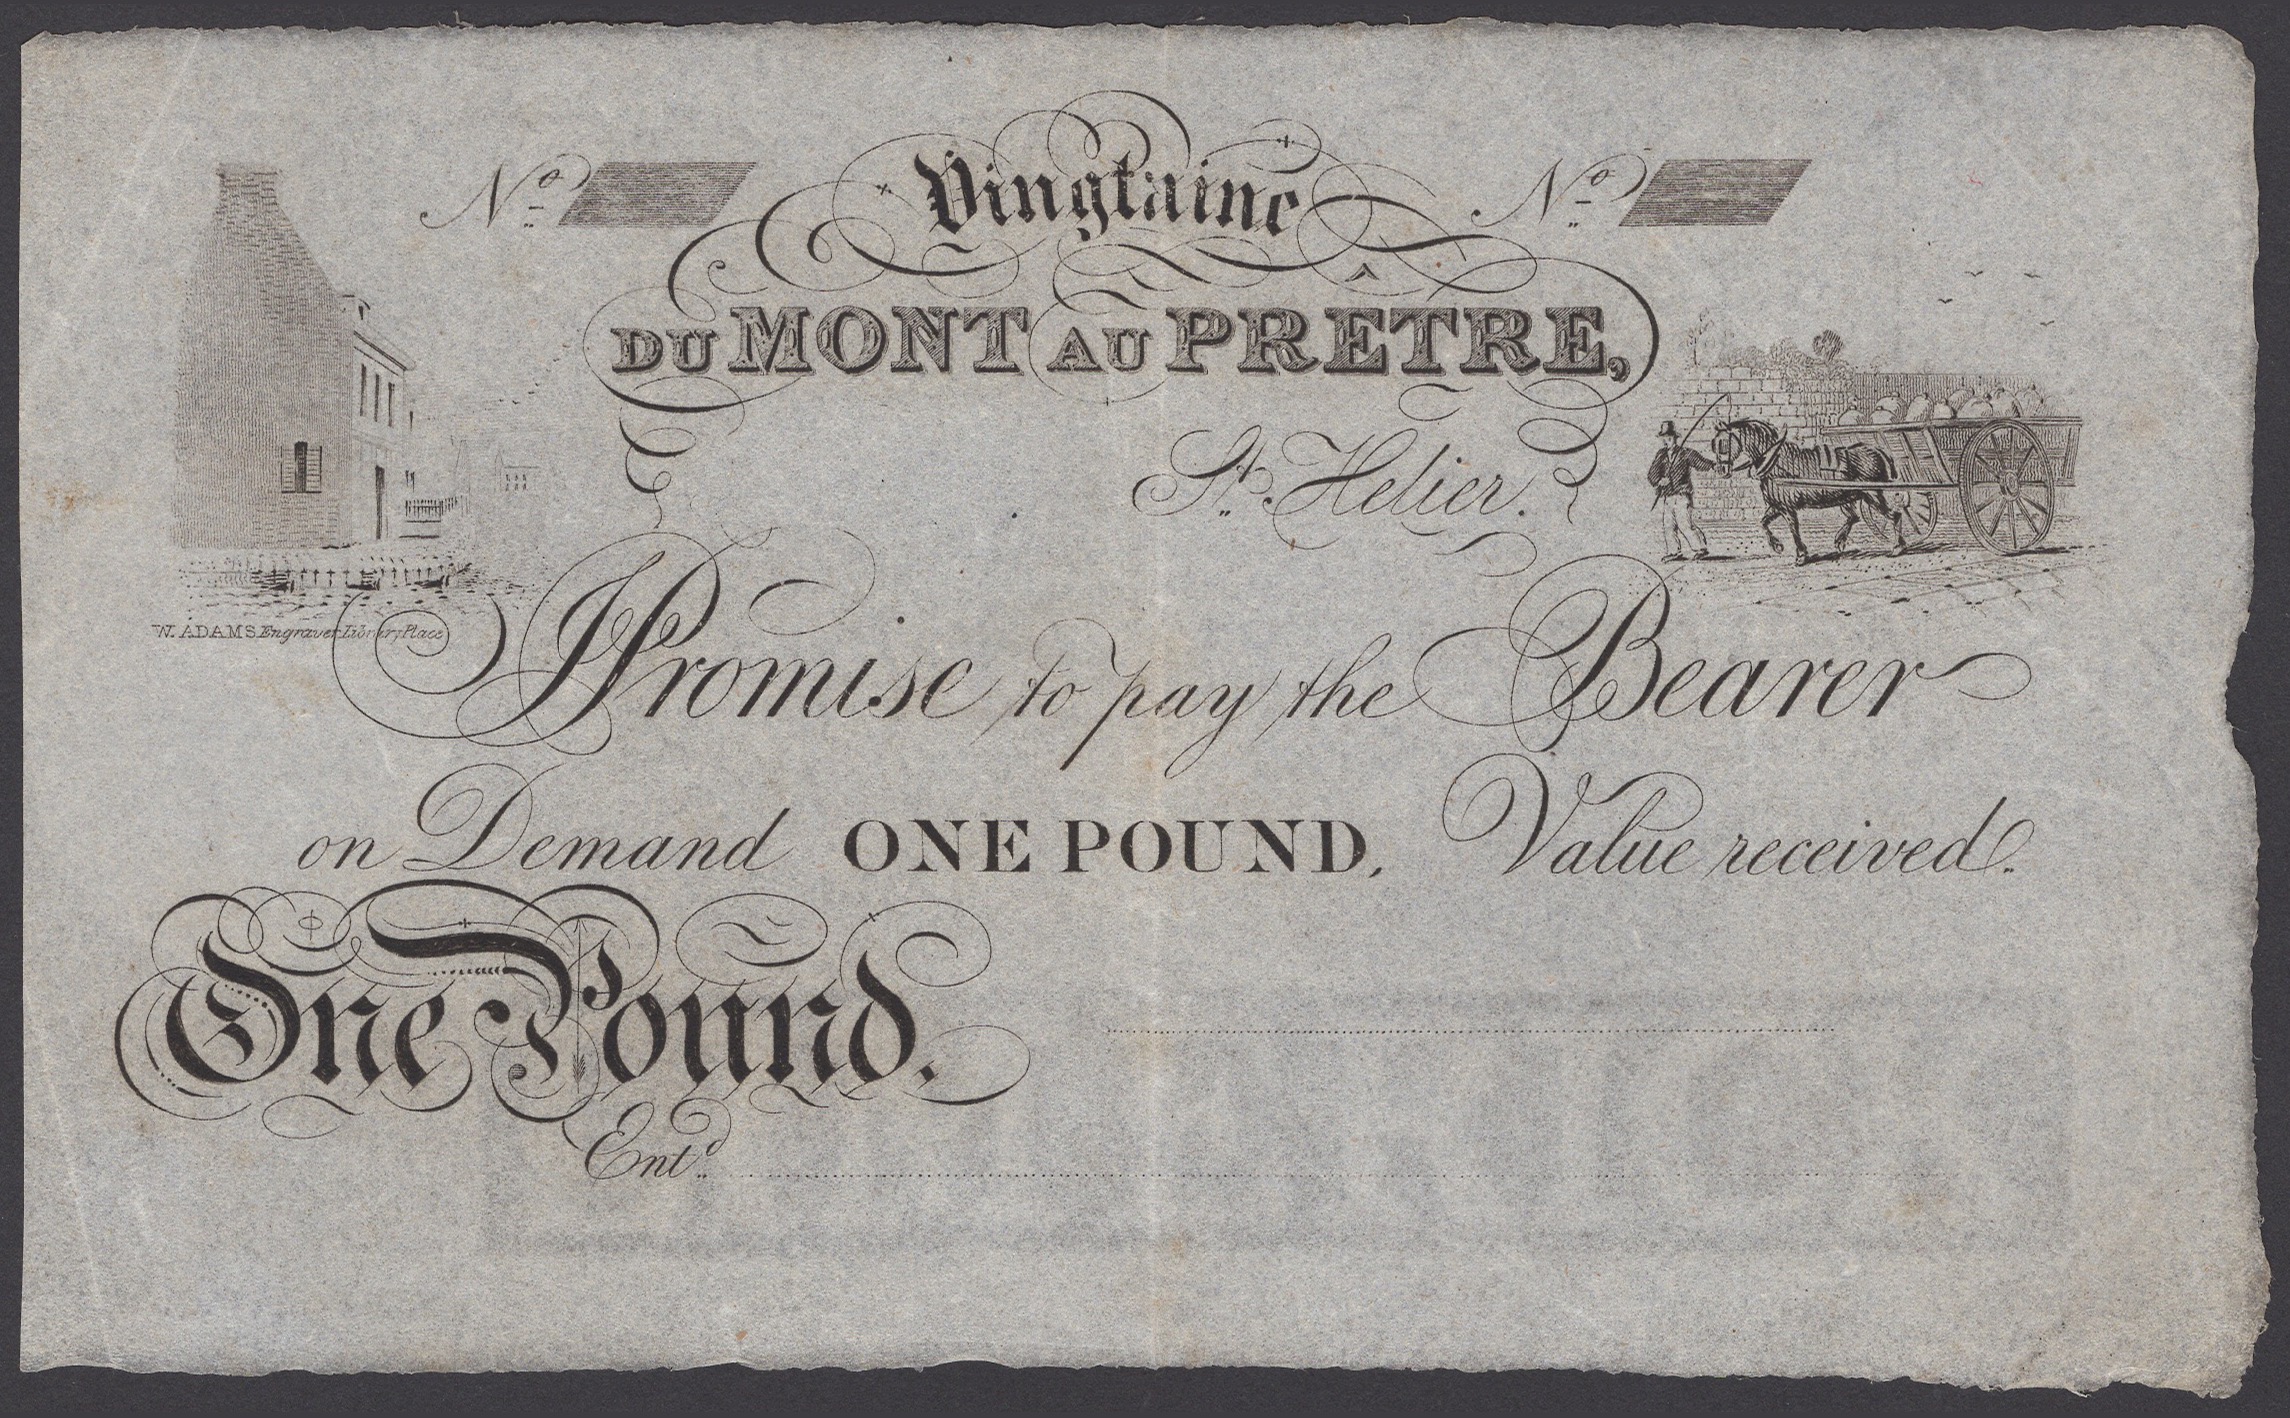 No. Vingtaine No.
DU MONT AU PRÊTRE,
St. Helier.
W. ADAMS Engraver Library Place
I Promise to pay the Bearer
on Demand ONE POUND, Value received.
One Pound.
Entd.